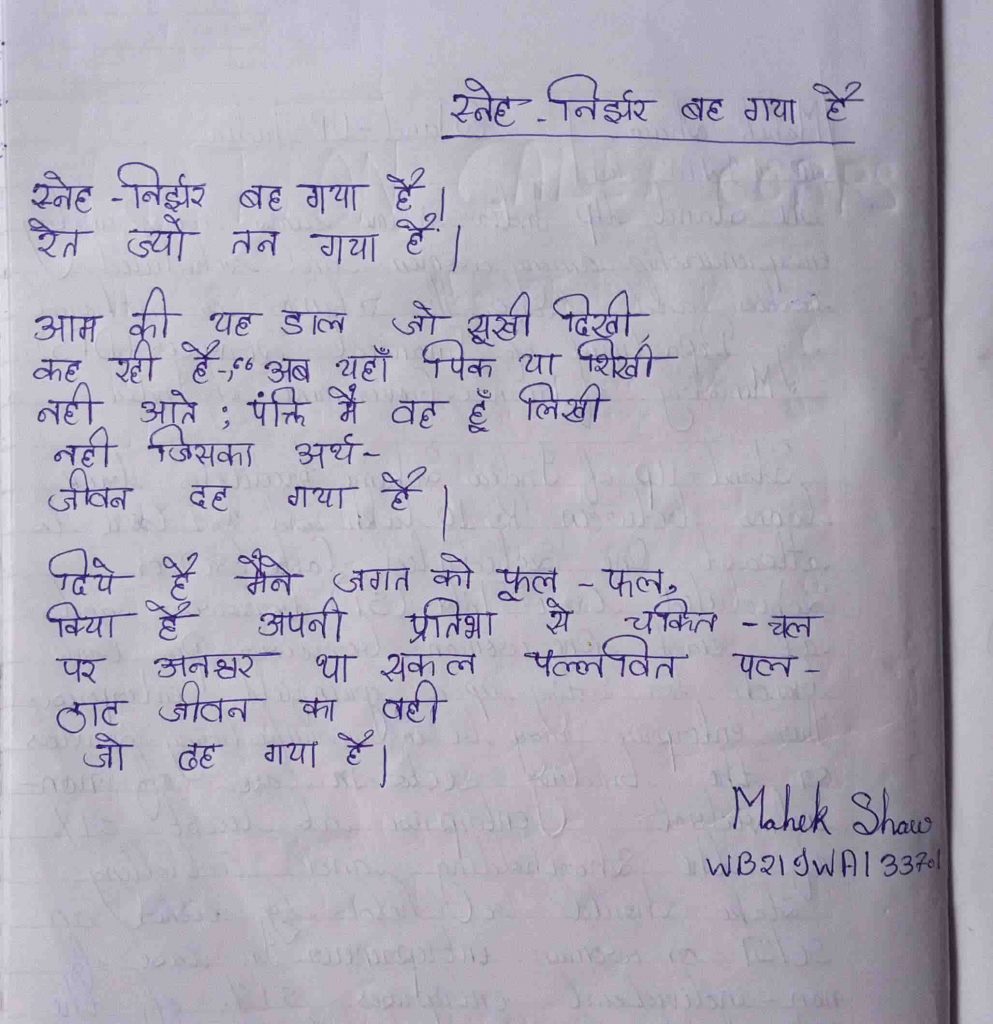 स्नेह - निर्झर बह गया है
स्नेह - निर्झर बह गया है।
रेत ज्यों तन गया है।
आम की यह डाल जो सूखी दिखी,
कह रही है-,“ अब यहाँ पिक या शिखी
नही आते ; पंक्ति मैं वह हूँ लिखी
नही जिसका अर्थ-
जीवन दह गया है।
दिये है मैंने जगत को फूल - फल,
किया है अपनी प्रतिभा से चकित - चल
पर अनश्वर था सकल पल्लवित पल-
ठाट जीवन का वही
जो ढह गया है।
Mahek Shaw
WB21SWA133701